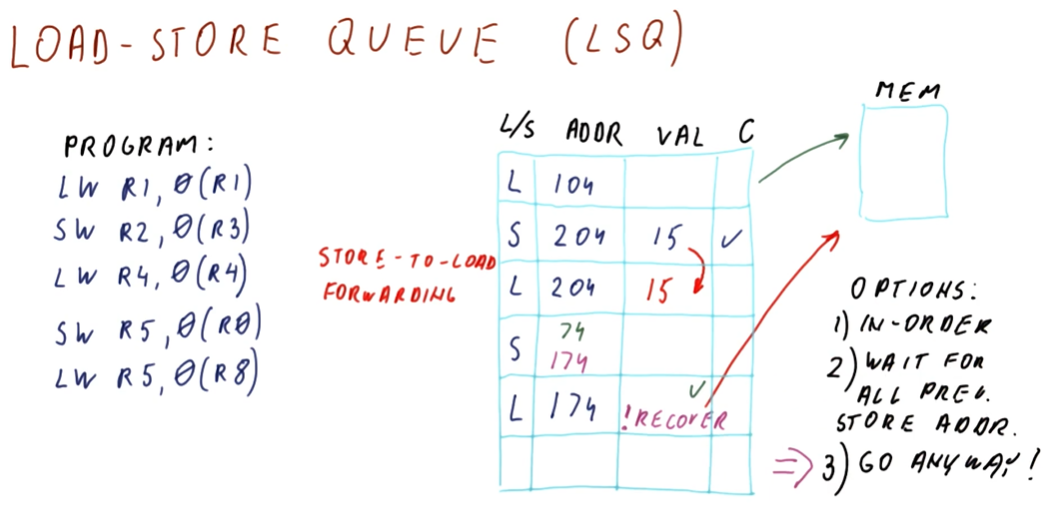 LOAD-STORE QUEUE (LSQ)
PROGRAM:
LW R1, 0(R1)
SW R2, 0(R3)
LW R4, 0(R4)
SW R5, 0(R0)
LW R5, 0(R8)
STORE-TO-LOAD
FORWARDING
L/S ADDR VAL C
L 104
S 204 15 ✓
L 204 15
S 74
174
L 174 ✓
!RECOVER
MEM
OPTIONS:
1) IN-ORDER
2) WAIT FOR
ALL PREV.
STORE ADDR.
⇒ 3) GO ANYWAY!